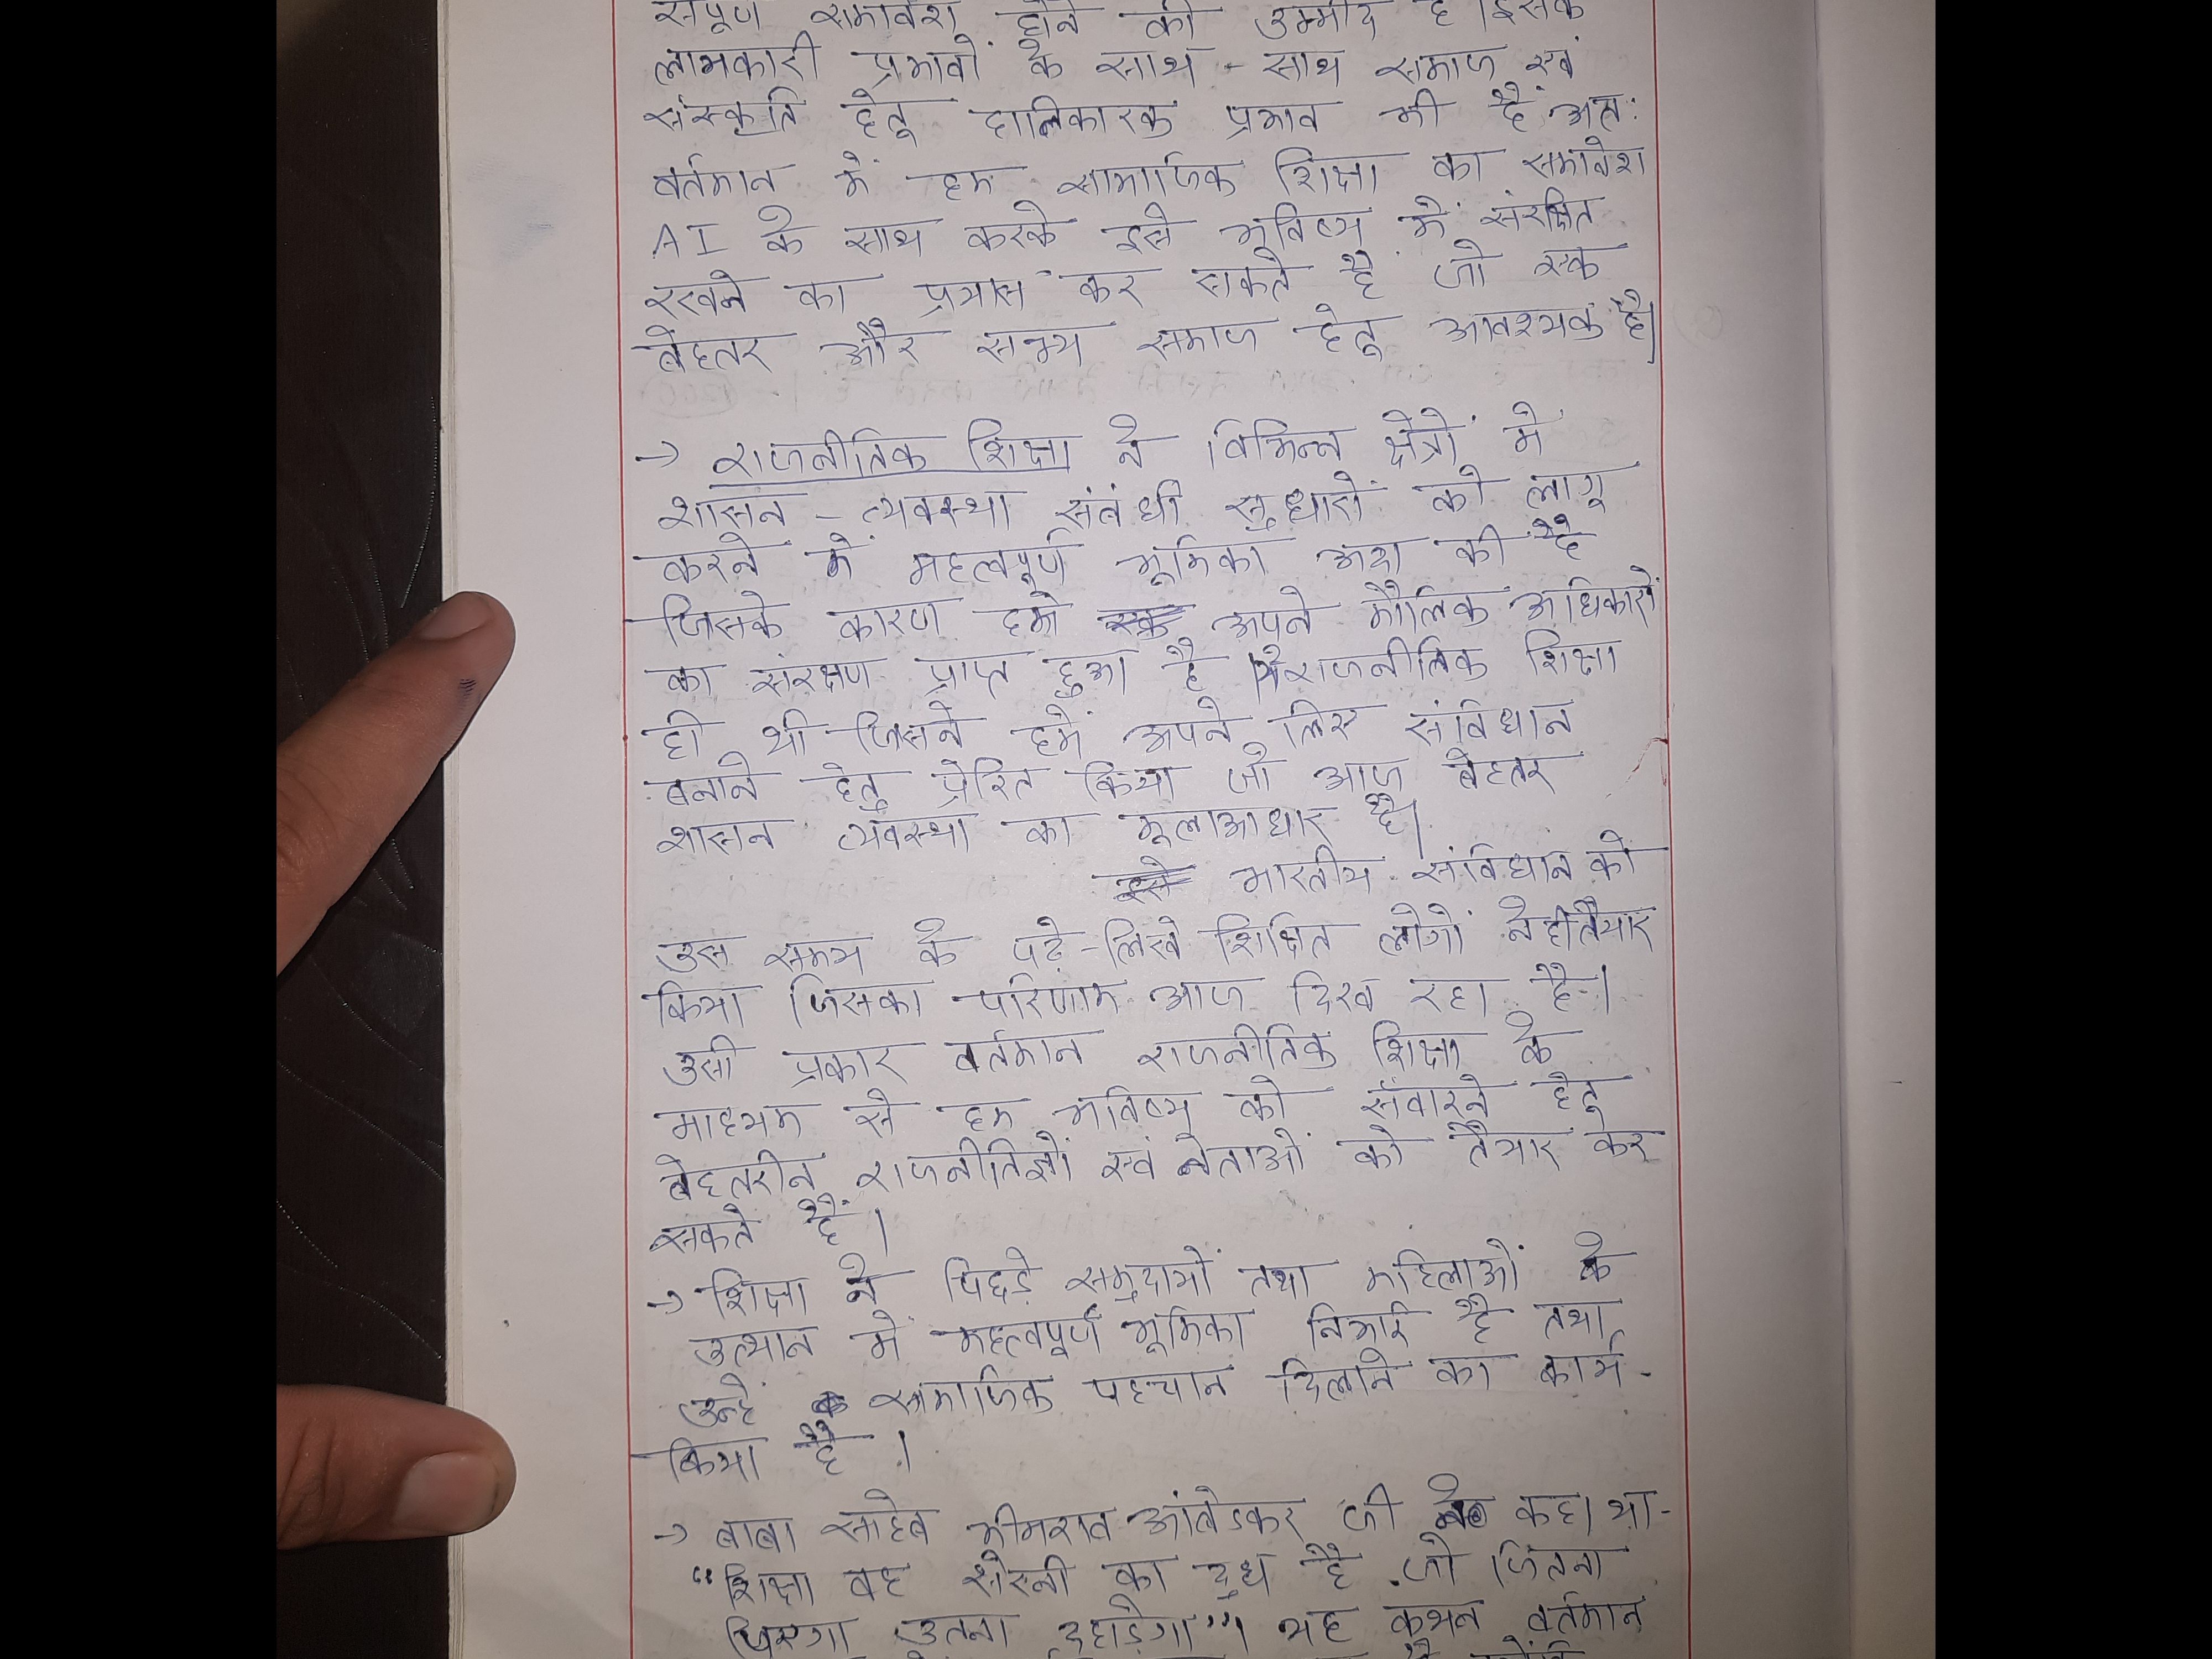 संपूर्ण समावेश होने की उम्मीद है। इसके
लाभकारी प्रभावों के साथ - साथ समाज एवं
संस्कृति हेतू हानिकारक प्रभाव भी है अतः
वर्तमान में हम सामाजिक शिक्षा का समावेश
AI के साथ करके इसे भविष्य में संरक्षित
रखने का प्रयास कर सकते है जो एक
बेहतर और सभ्य समाज हेतू आवश्यक है।
→ राजनीतिक शिक्षा ने विभिन्न क्षेत्रों में
शासन - व्यवस्था संबंधी सुधारों को लागू
करने में महत्वपूर्ण भूमिका अदा की है
जिसके कारण हमे अपने मौलिक अधिकारों
का संरक्षण प्राप्त हुआ है। राजनीतिक शिक्षा
ही थी जिसने हमें अपने लिए संविधान
बनाने हेतु प्रेरित किया जो आज बेहतर
शासन व्यवस्था का मूलाआधार है।
भारतीय संविधान को
उस समय के पढ़े-लिखे शिक्षित लोगों ने ही तैयार
किया जिसका परिणाम आज दिख रहा है।
उसी प्रकार वर्तमान राजनीतिक शिक्षा के
माध्यम से हम भविष्य को संवारने हेतू
बेहतरीन राजनीतिज्ञों एवं नेताओं को तैयार कर
सकते हैं।
→ शिक्षा ने पिछड़े समुदायों तथा महिलाओं के
उत्थान में महत्वपूर्ण भूमिका निभाई है तथा
उन्हें सामाजिक पहचान दिलाने का कार्य
किया है।
→ बाबा साहेब भीमराव आंबेडकर जी ने कहा था-
"शिक्षा वह शेरनी का दुध है जो जितना
पिएगा उतना दहाड़ेगा"। यह कथन वर्तमान